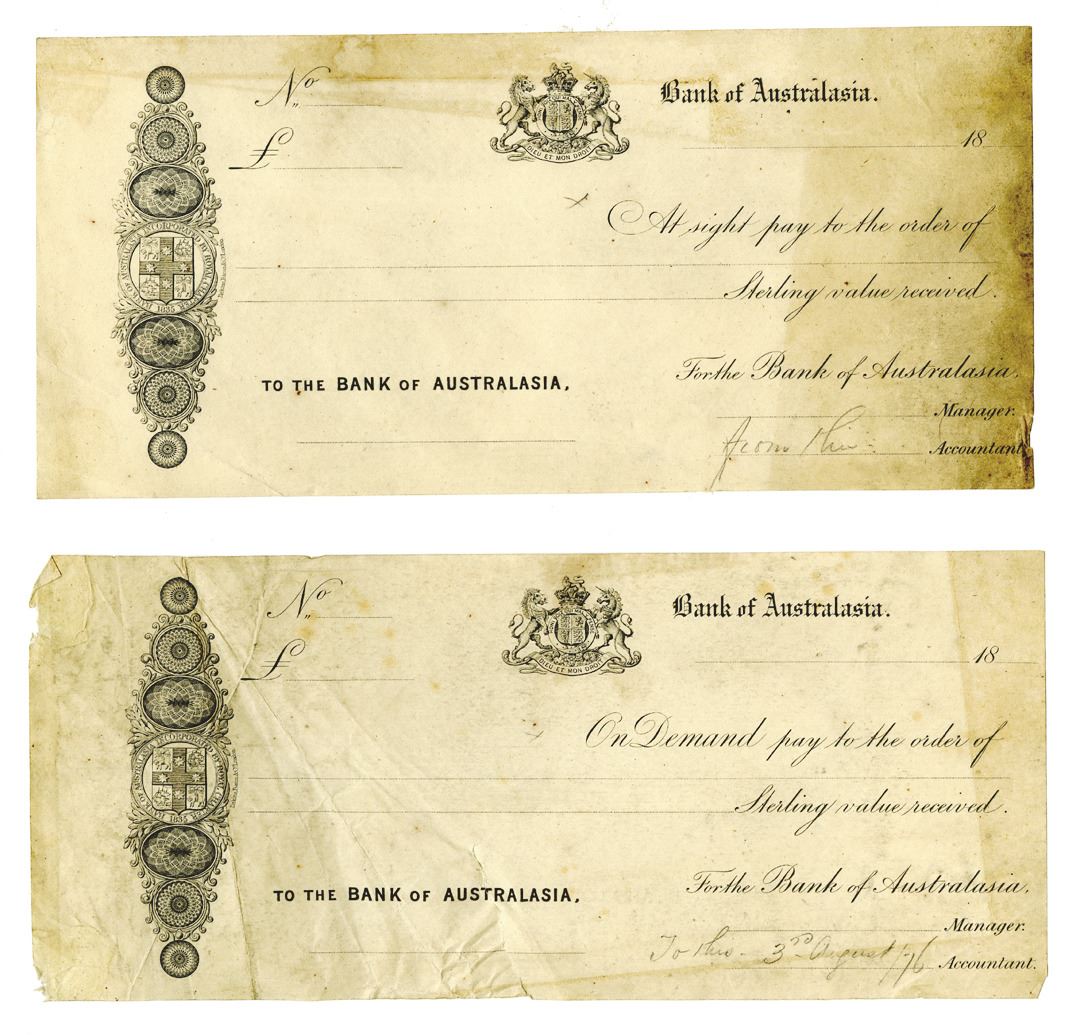 No
£
BANK OF AUSTRALASIA INCORPORATED BY ROYAL CHARTER 1835
DIEU ET MON DROIT
Bank of Australasia.
18
At sight pay to the order of
Sterling value received.
TO THE BANK OF AUSTRALASIA,
For the Bank of Australasia,
Manager.
From this
Accountant
No
£
BANK OF AUSTRALASIA INCORPORATED BY ROYAL CHARTER 1835
DIEU ET MON DROIT
Bank of Australasia.
18
On Demand pay to the order of
Sterling value received.
TO THE BANK OF AUSTRALASIA,
For the Bank of Australasia,
Manager.
To this - 3rd August /76
Accountant.